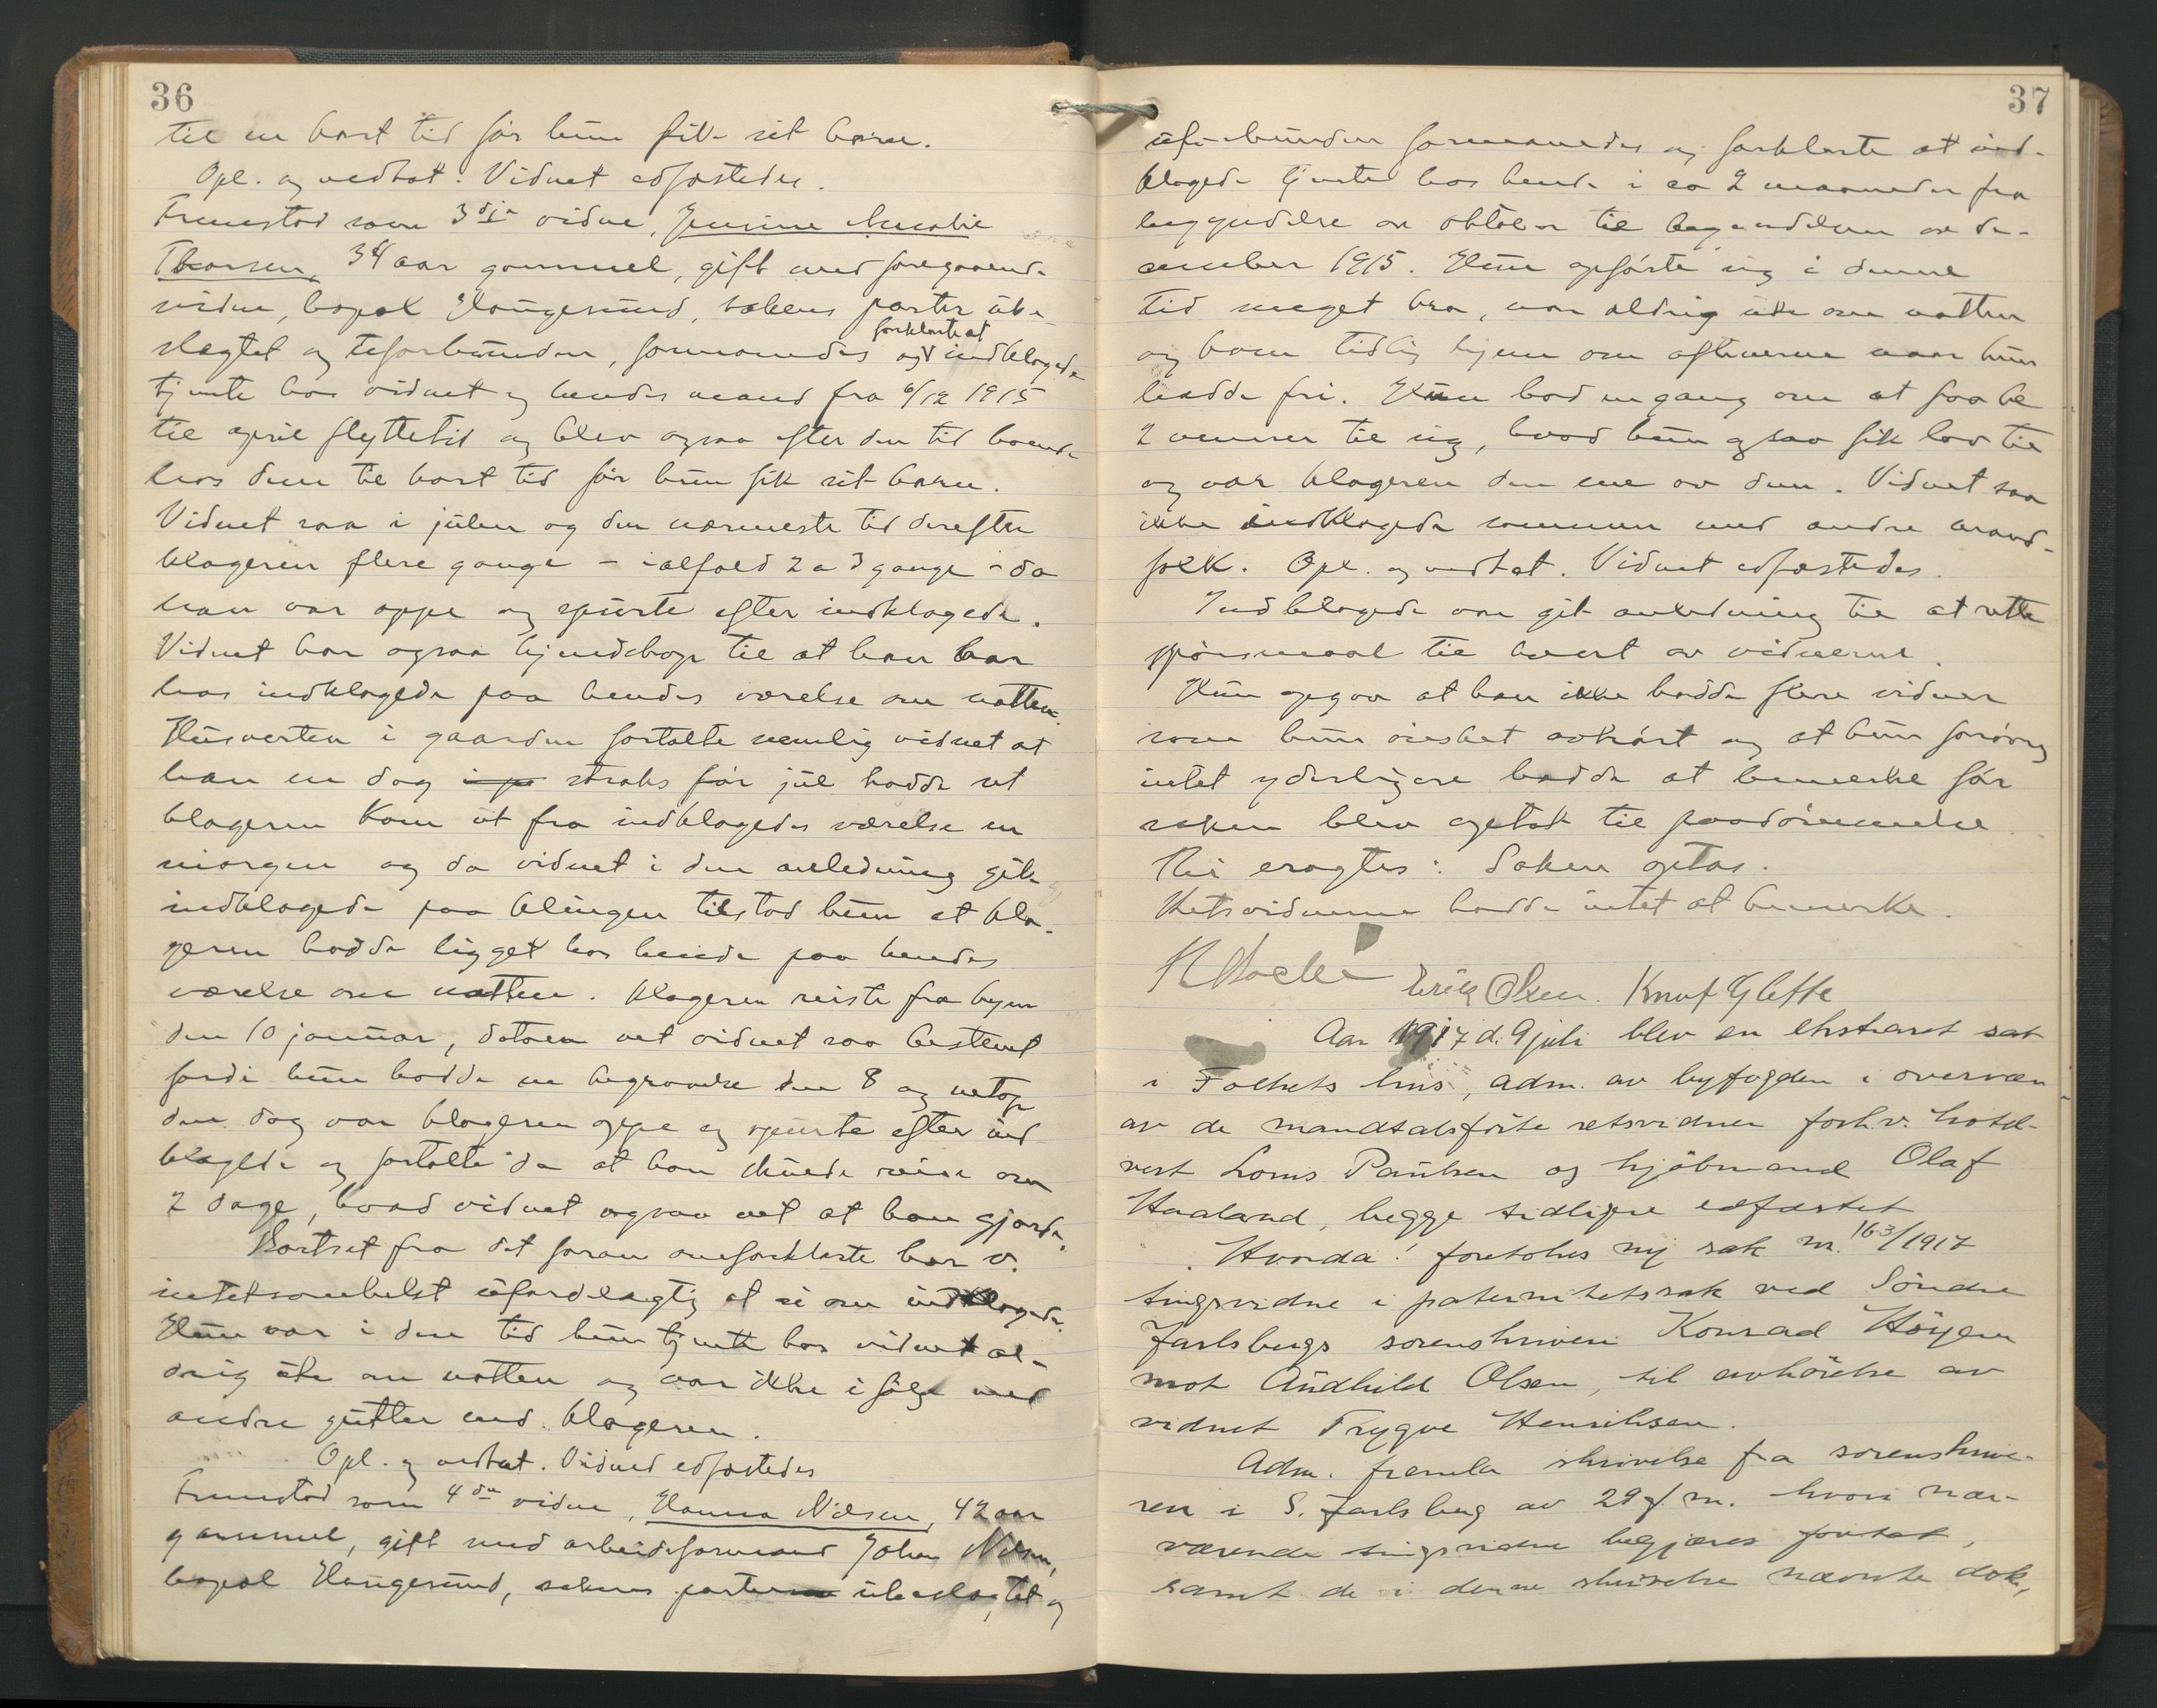 36
til en kort tid før hun fik sit barn.
Opl. og vedtat. Vidnet edfæstedes.
Fremstod som 3dje vidne, Jensine Amalie
Thorsen, 34 aar gammel, gift med foregaaende
vidne, bopæl Haugesund, sakens parter ube-
slegtet og uforbunden, formanedes og forklarte at indklagede
tjente hos vidnet og hendes mand fra 6/12 1915
til april flyttetid og blev ogsaa efter den tid boende
hos dem til kort tid før hun fik sit barn.
Vidnet saa i julen og den nærmeste tid derefter
klageren flere gange - ialfald 2 a 3 gange - da
han var oppe og spurte efter indklagede.
Vidnet har ogsaa kjendskap til at han var
hos indklagede paa hendes værelse om natten.
Husverten i gaarden fortalte nemlig vidnet at
han en dag straks før jul hadde set
klageren kom ut fra indklagedes værelse en
morgen og da vidnet i den anledning gik
indklagede paa klingen tilstod hun at kla-
geren hadde ligget hos hende paa hendes
værelse om natten. Klageren reiste fra byen
den 10 januar, datoen vet vidnet saa bestemt
fordi hun hadde en begravelse den 8 og netop
den dag var klageren oppe og spurte efter ind
klagede og fortalte da at han skulde reise om
2 dage, hvad vidnet ogsaa vet at han gjorde.
Bortset fra det foran omforklarte har v.
intetsomhelst ufordelagtig at si om indklagede.
Hun var i den tid hun tjente hos vidnet al-
drig ute om natten og var ikke i følge med
andre gutter end klageren.
Opl. og vedtat. Vidnet edfæstedes
Fremstod som 4de vidne, Hanna Nilsen, 42 aar
gammel, gift med arbeidsformand Johan Nilsen,
bopæl Haugesund, sakens parter ubeslegtet og
37
uforbunden formanedes og forklarte at ind-
klagede tjente hos hende i ca 2 maaneder fra
begyndelse av oktober til begyndelsen av de-
cember 1915. Hun opførte sig i denne
tid meget bra, var aldrig ute om natten
og kom tidlig hjem om aftenerne naar hun
hadde fri. Hun bad engang om at faa be
2 venner til sig, hvad hun ogsaa fik lov til
og var klageren den ene av dem. Vidnet saa
ikke indklagede sammen med andre mand-
folk. Opl. og vedtat. Vidnet edfæstedes.
Indklagede var git anledning til at rette
spørsmaal til hvert av vidnerne.
Hun opgav at hun ikke hadde flere vidner
som hun ønsket avhørt og at hun forøvrig
intet yderligere hadde at bemerke før
saken blev optat til paadømmelse.
Ti eragtes: Saken optas.
Retsvidnerne hadde intet at bemerke.
Erik Olsen. Knut Glette
Aar 1917 d. 9 juli blev en ekstraret sat
i Folkets hus, adm. av byfogden i overvær
av de mandtalsførte retsvidner forhv. hotel-
vert Louis Paulsen og kjøbmand Olaf
Haaland, begge tidligere edfæstet
Hvorda! foretokes ny sak nr. 163/1917
tingsvidne i paternitetssak ved Søndre
Jarlsbergs sorenskriveri Konrad Høyem
mot Andhild Olsen, til avhørelse av
vidnet Trygve Henriksen.
Adm. fremla skrivelse fra sorenskrive-
ren i S. Jarlsberg av 29 f. m. hvori nær-
værende tingsvidne begjæres foretat,
samt de i denne skrivelse nævnte dok,